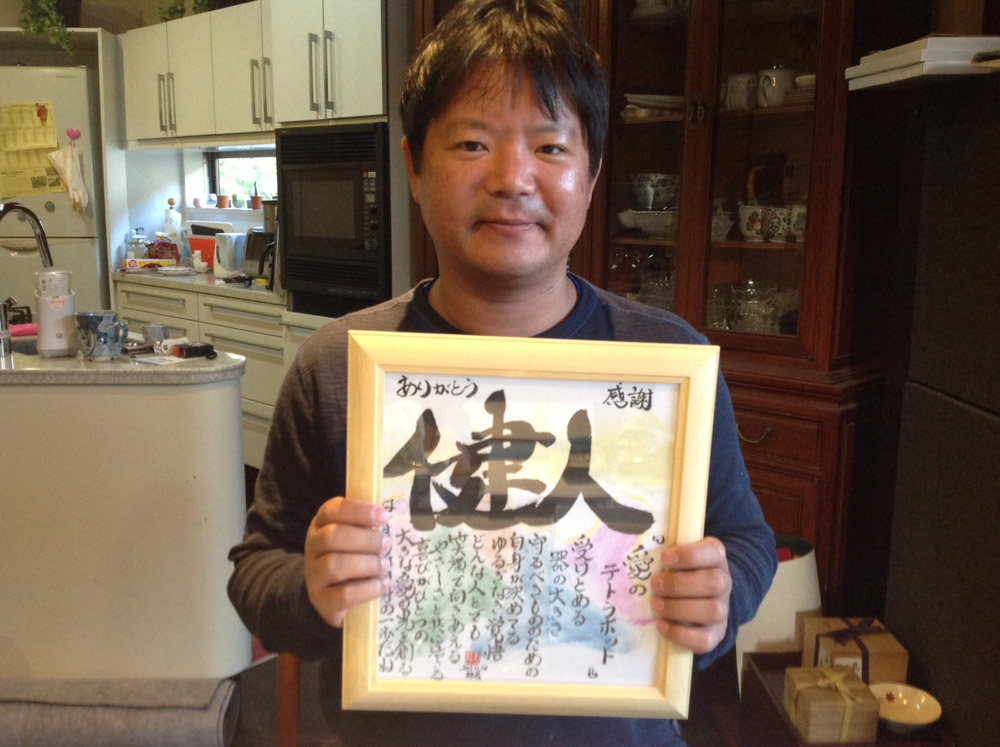 ありがとう
感謝
健人
『愛の
テトラポット』
受けとめる
器の大きさ
守るべきもののための
自身が決めてる
ゆるぎなき覚悟
どんな人とでも
笑顔で向きあえる
喜びがひとつの
大きな愛の光を創る